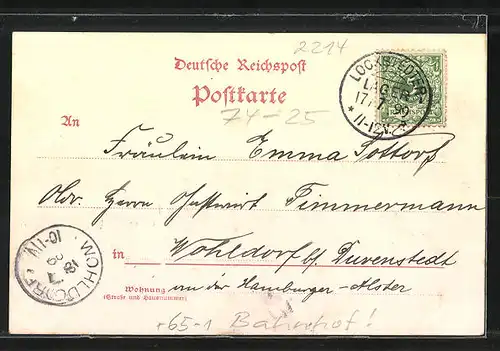 2214
Deutsche Reichspost
Postkarte
74-25
LOCKSTEDTER
LAGER
17/7 90
* 11-12V. *
An
Fräulein Emma Sottorf
Adr. Herrn Gastwirt Timmermann
in Wohldorf b/ Duvenstedt
Wohnung an der Hamburger-Alster
(Straße und Hausnummer)
WOHLDORF
18
7
90
10-11V
r65-1 Bahnhof!